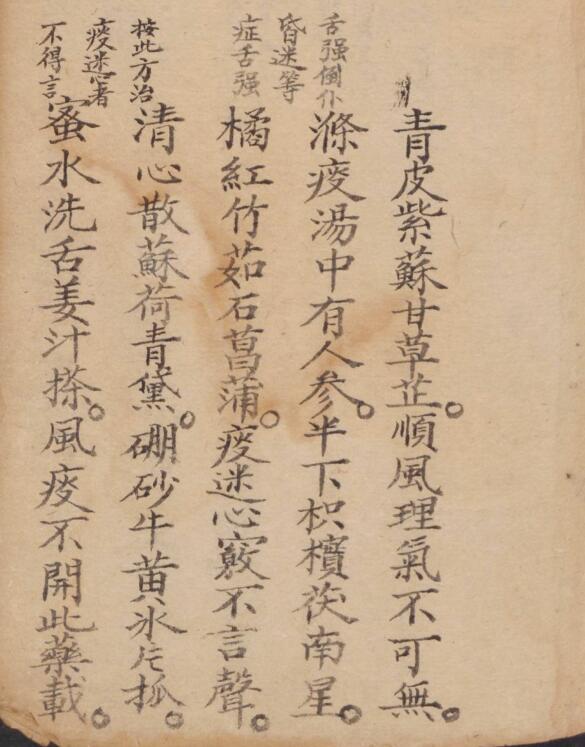 青皮紫蘇甘草芷。順風理氣不可無。
舌強倒仆
昏迷等
症舌強
滌痰湯中有人參。半下枳檳茯南星。
橘紅竹茹石菖蒲。痰迷心竅不言聲。
按此方治
痰迷心者
不得言
清心散蘇荷青黛。硼砂牛黃冰片抓。
蜜水洗舌姜汁搽。風痰不開此藥載。